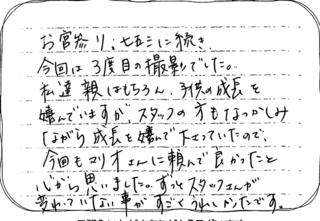 お宮参り、七五三に続き
今回は3度目の撮影でした。
私達親はもちろん、子供の成長を
嬉んでいますが、スタッフの方もなつかしみ
ながら成長を嬉んで下さっていたので、
今回もマリオさんに頼んで良かったと
心から思いました。ずっとスタッフさんが
変わっていない事がすごくうれしかったです。